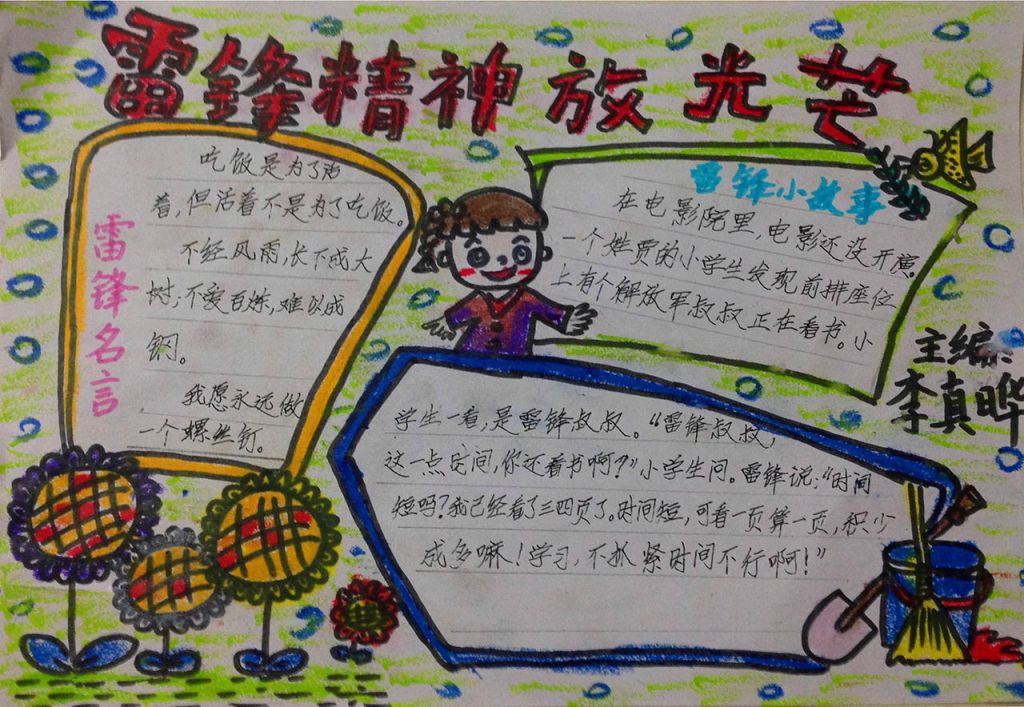 雷锋精神放光芒
雷锋名言
吃饭是为了活
着,但活着不是为了吃饭。
不经风雨,长不成大
树;不受百炼,难以成
钢。
我愿永远做
一个螺丝钉。
雷锋小故事
在电影院里,电影还没开演。
一个姓贾的小学生发现前排座位
上有个解放军叔叔正在看书。小
学生一看,是雷锋叔叔。“雷锋叔叔,
这一点空间,你还看书啊?”小学生问。雷锋说:“时间
短吗?我已经看了三四页了。时间短,可看一页算一页,积少
成多嘛!学习,不抓紧时间不行啊!”
主编:
李真晔